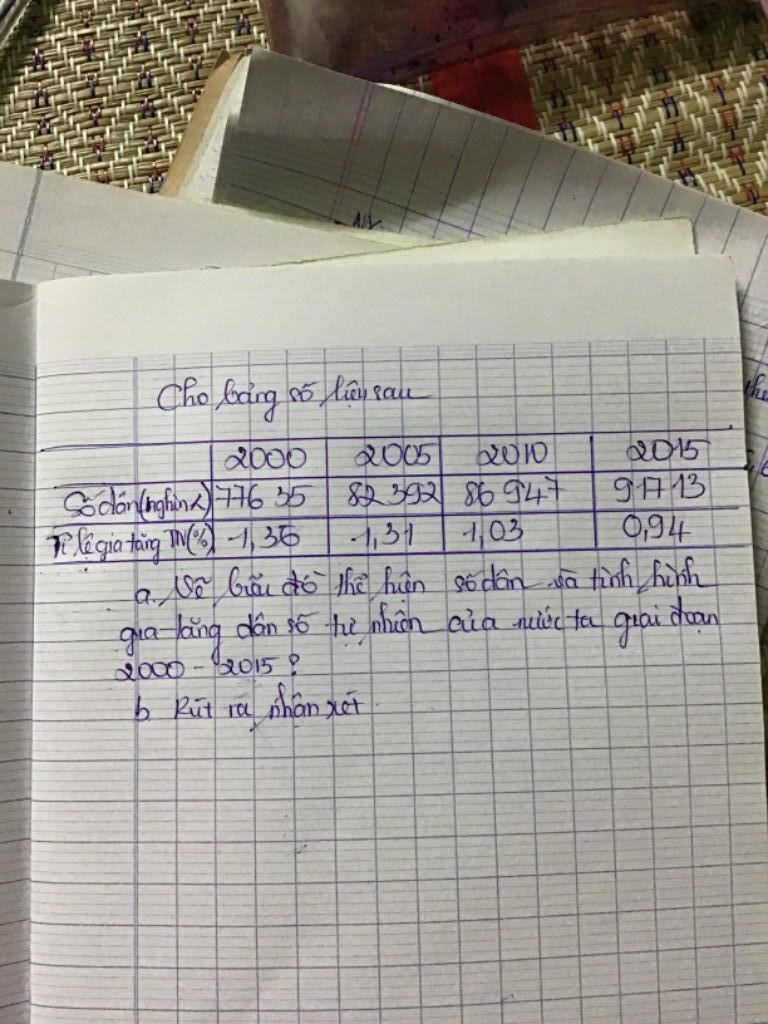 Cho bảng số liệu sau
2000 2005 2010 2015
Số dân (nghìn 77635 82392 86947 91713
Tỉ lệ gia tăng TN(%) 1,36 1,31 1,03 0,94
a. Vẽ biểu đồ thể hiện số dân và tình hình
gia tăng dân số tự nhiên của nước ta giai đoạn
2000 - 2015?
b Rút ra nhận xét.